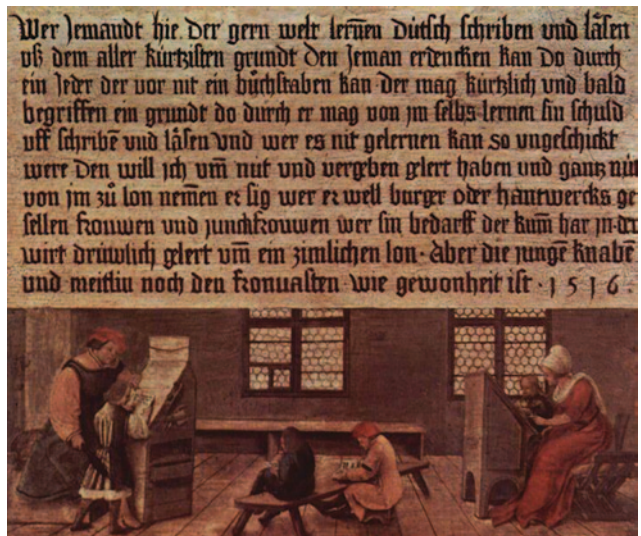 Wer Jemandt hie der gern welt lernen Dütsch schriben und läsen
uß dem aller kürtzisten grundt den Jeman erdencken kan Do durch
ein Jeder der vor nit ein buͦchstaben kan der mag kürtzlich und bald
begriffen ein grundt do durch er mag von jm selbs lernen sin schuld
uff schribē und läsen Und wer es nit gelernen kan so ungeschickt
were Den will jch um̄ nüt und vergeben gelert haben und gantz nüt
von jm zuͦ lon nemen er sig wer er well burger oder hantwercks ge
sellen frouwen und junckfrouwen wer sin bedarff der kum̄ har jn der
wirt drüwlich gelert um̄ ein zimlichen lon · Aber die jungē knabē
und meitlin noch den fronuasten wie gewonheit ist · 1516 ·